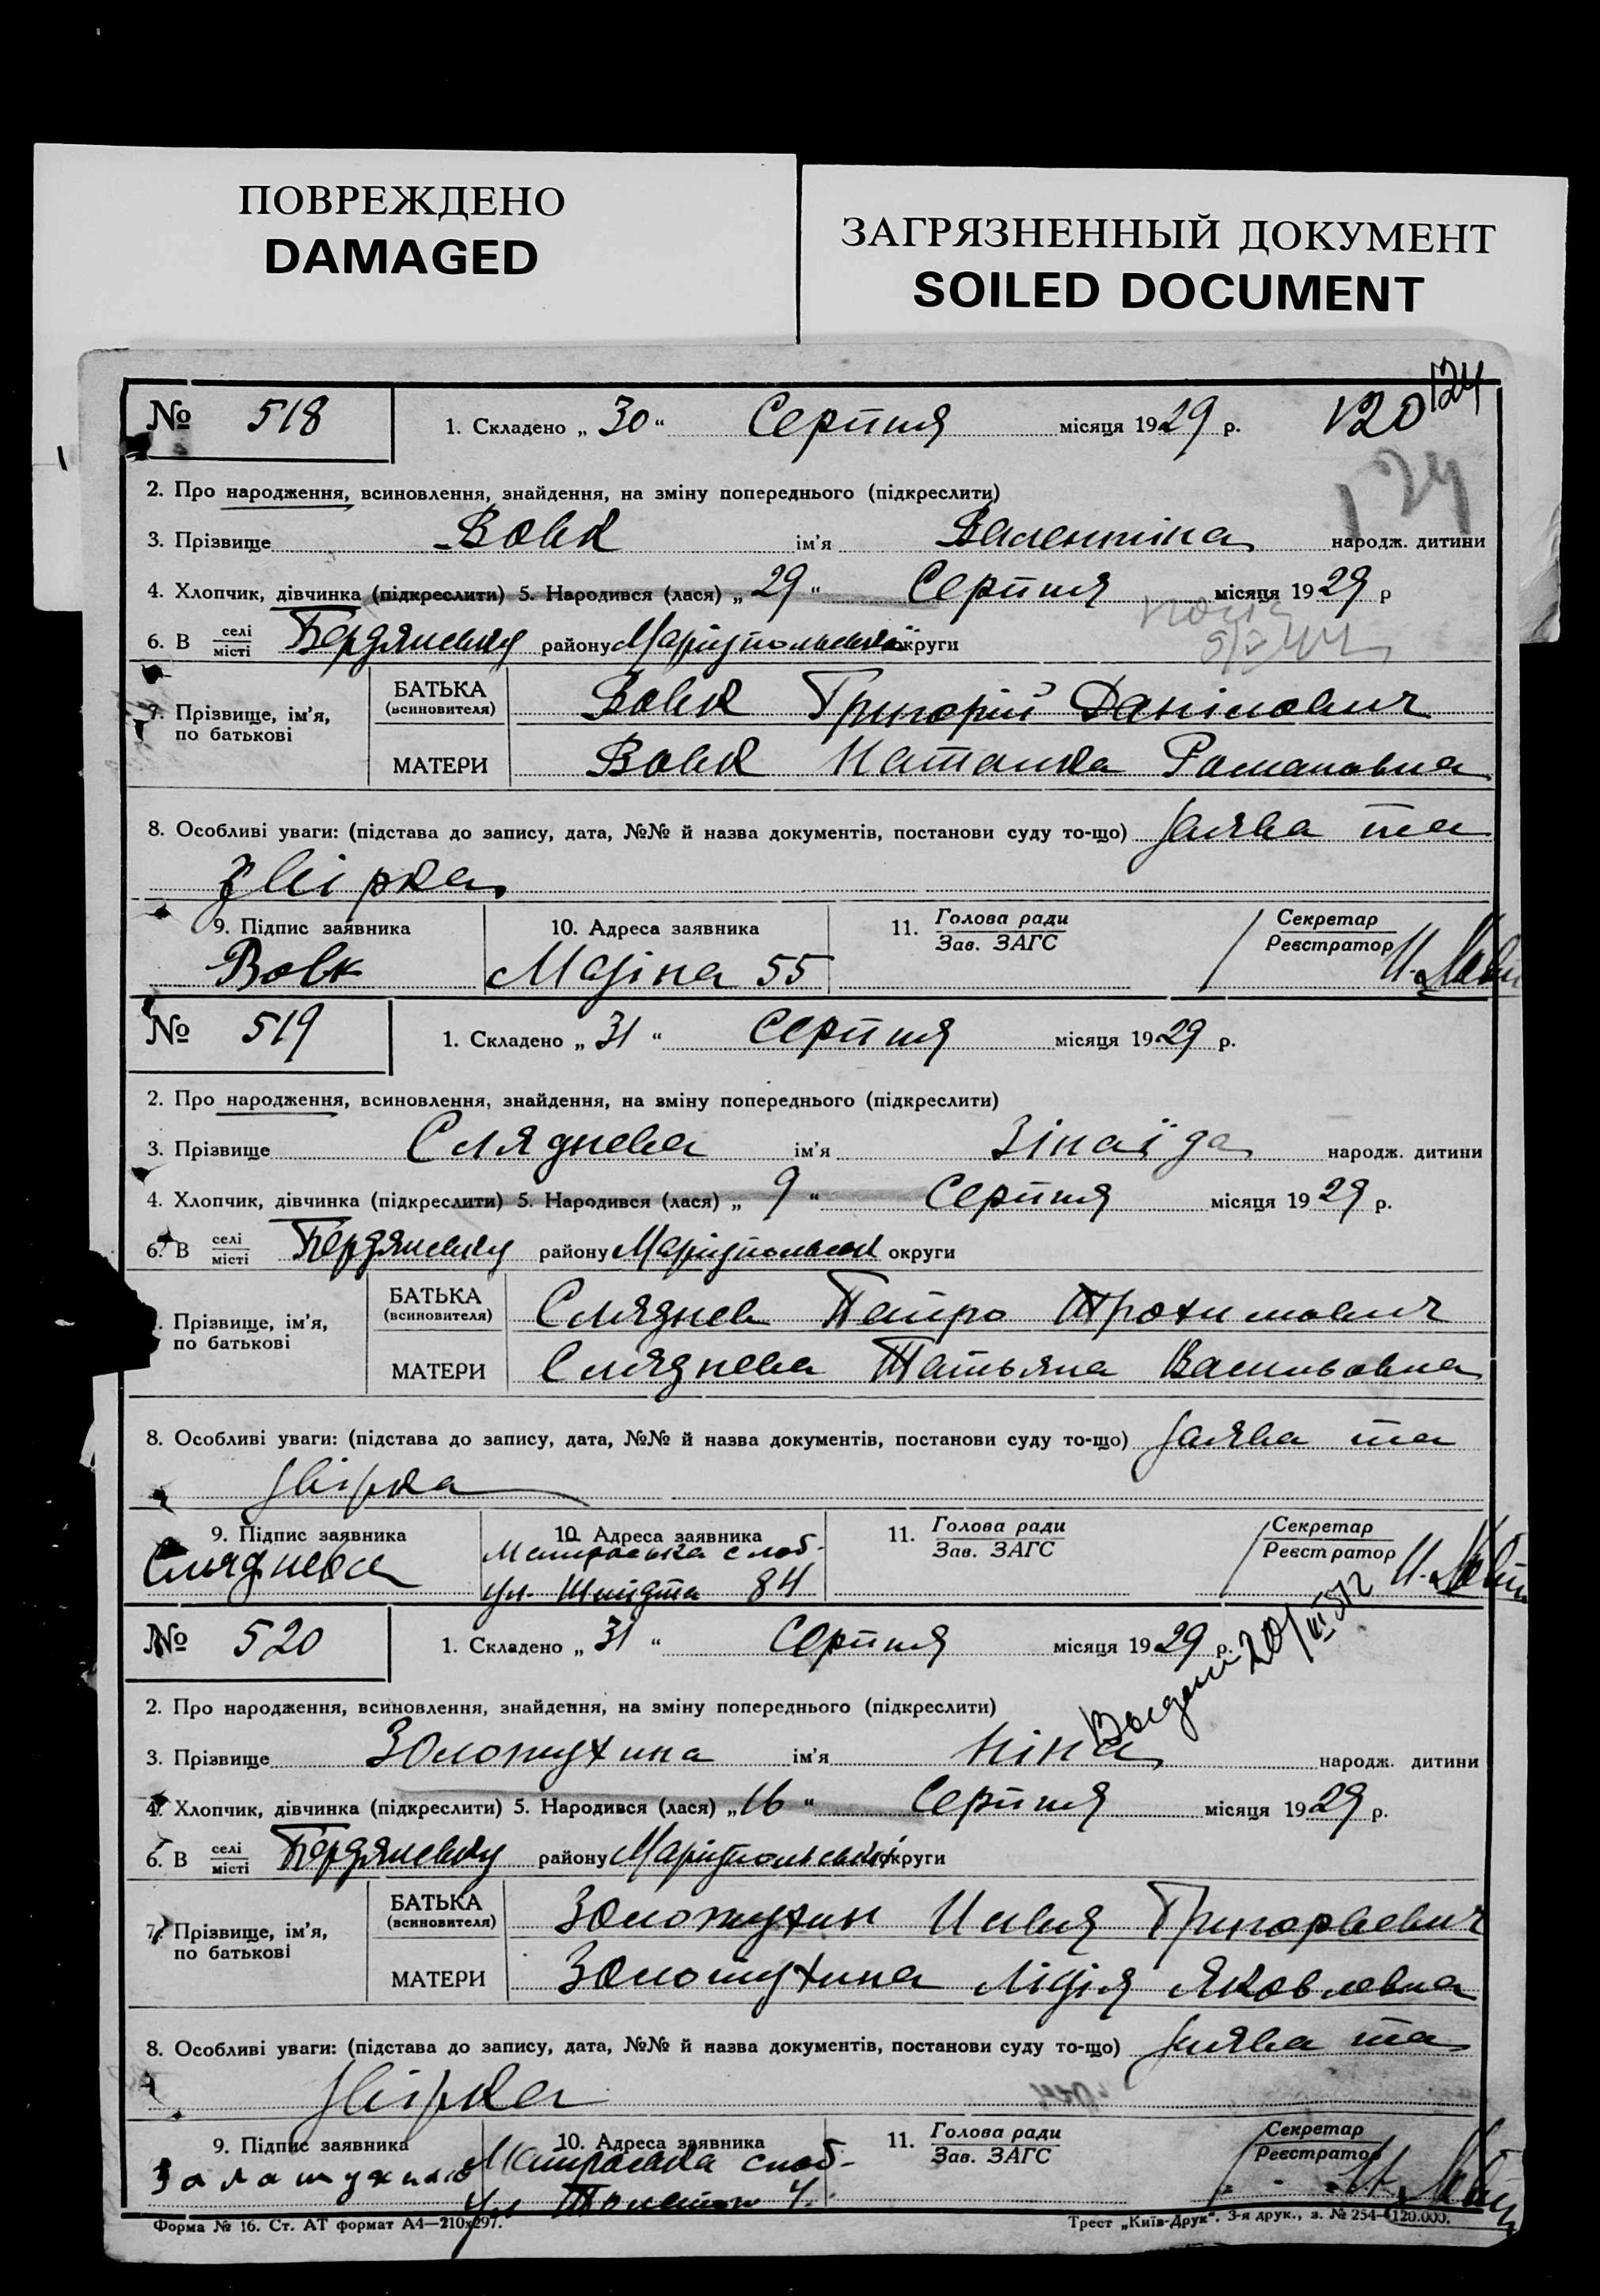 ПОВРЕЖДЕНО
DAMAGED
ЗАГРЯЗНЕННЫЙ ДОКУМЕНТ
SOILED DOCUMENT
124
№ 518 1. Складено „ 30 “ Серпня місяця 1929 р. 120
124
2. Про народження, всиновлення, знайдення, на зміну попереднього (підкреслити)
3. Прізвище Вовк ім'я Валентіна народж. дитини
4. Хлопчик, дівчинка (підкреслити) 5. Народився (лася) „ 29 “ Серпня місяця 1929 р
6. В селі/місті Бердянську району Маріупольської округи
7. Прізвище, ім'я, по батькові
БАТЬКА (всиновителя) Вовк Григорій Данілович
МАТЕРИ Вовк Наталка Романовна
8. Особливі уваги: (підстава до запису, дата, №№ й назва документів, постанови суду то-що) Заява та
звірка
9. Підпис заявника 10. Адреса заявника 11. Голова ради/Зав. ЗАГС Секретар/Реєстратор
Вовк 55
№ 519 1. Складено „ 31 “ Серпня місяця 1929 р.
2. Про народження, всиновлення, знайдення, на зміну попереднього (підкреслити)
3. Прізвище Сляднева ім'я Зінаїда народж. дитини
4. Хлопчик, дівчинка (підкреслити) 5. Народився (лася) „ 9 “ Серпня місяця 1929 р.
6. В селі/місті Бердянську району Маріупольськ округи
Прізвище, ім'я, по батькові
БАТЬКА (всиновителя) Сляднев Петро Трохимович
МАТЕРИ Сляднева Татьяна Васильовна
8. Особливі уваги: (підстава до запису, дата, №№ й назва документів, постанови суду то-що) Заява та
звірка
9. Підпис заявника 10. Адреса заявника 11. Голова ради/Зав. ЗАГС Секретар/Реєстратор
Сляднева Матроська слоб.
ул. Шмідта 84
№ 520 1. Складено „ 31 “ Серпня місяця 1929 р.
2. Про народження, всиновлення, знайдення, на зміну попереднього (підкреслити)
3. Прізвище Золотухина ім'я Ніна народж. дитини
4. Хлопчик, дівчинка (підкреслити) 5. Народився (лася) „ 16 “ Серпня місяця 1929 р.
6. В селі/місті Бердянську району Маріупольській округи
7. Прізвище, ім'я, по батькові
БАТЬКА (всиновителя) Золотухин Илья Григорьевич
МАТЕРИ Золотухина Лідія Яковлевна
8. Особливі уваги: (підстава до запису, дата, №№ й назва документів, постанови суду то-що) Заява та
звірка
9. Підпис заявника 10. Адреса заявника 11. Голова ради/Зав. ЗАГС Секретар/Реєстратор
Матроська слоб.
Ул Толстого 4.
Форма № 16. Ст. АТ формат А4—210х297. Трест „Київ-Друк“. 3-я друк., з. № 254—120.000.